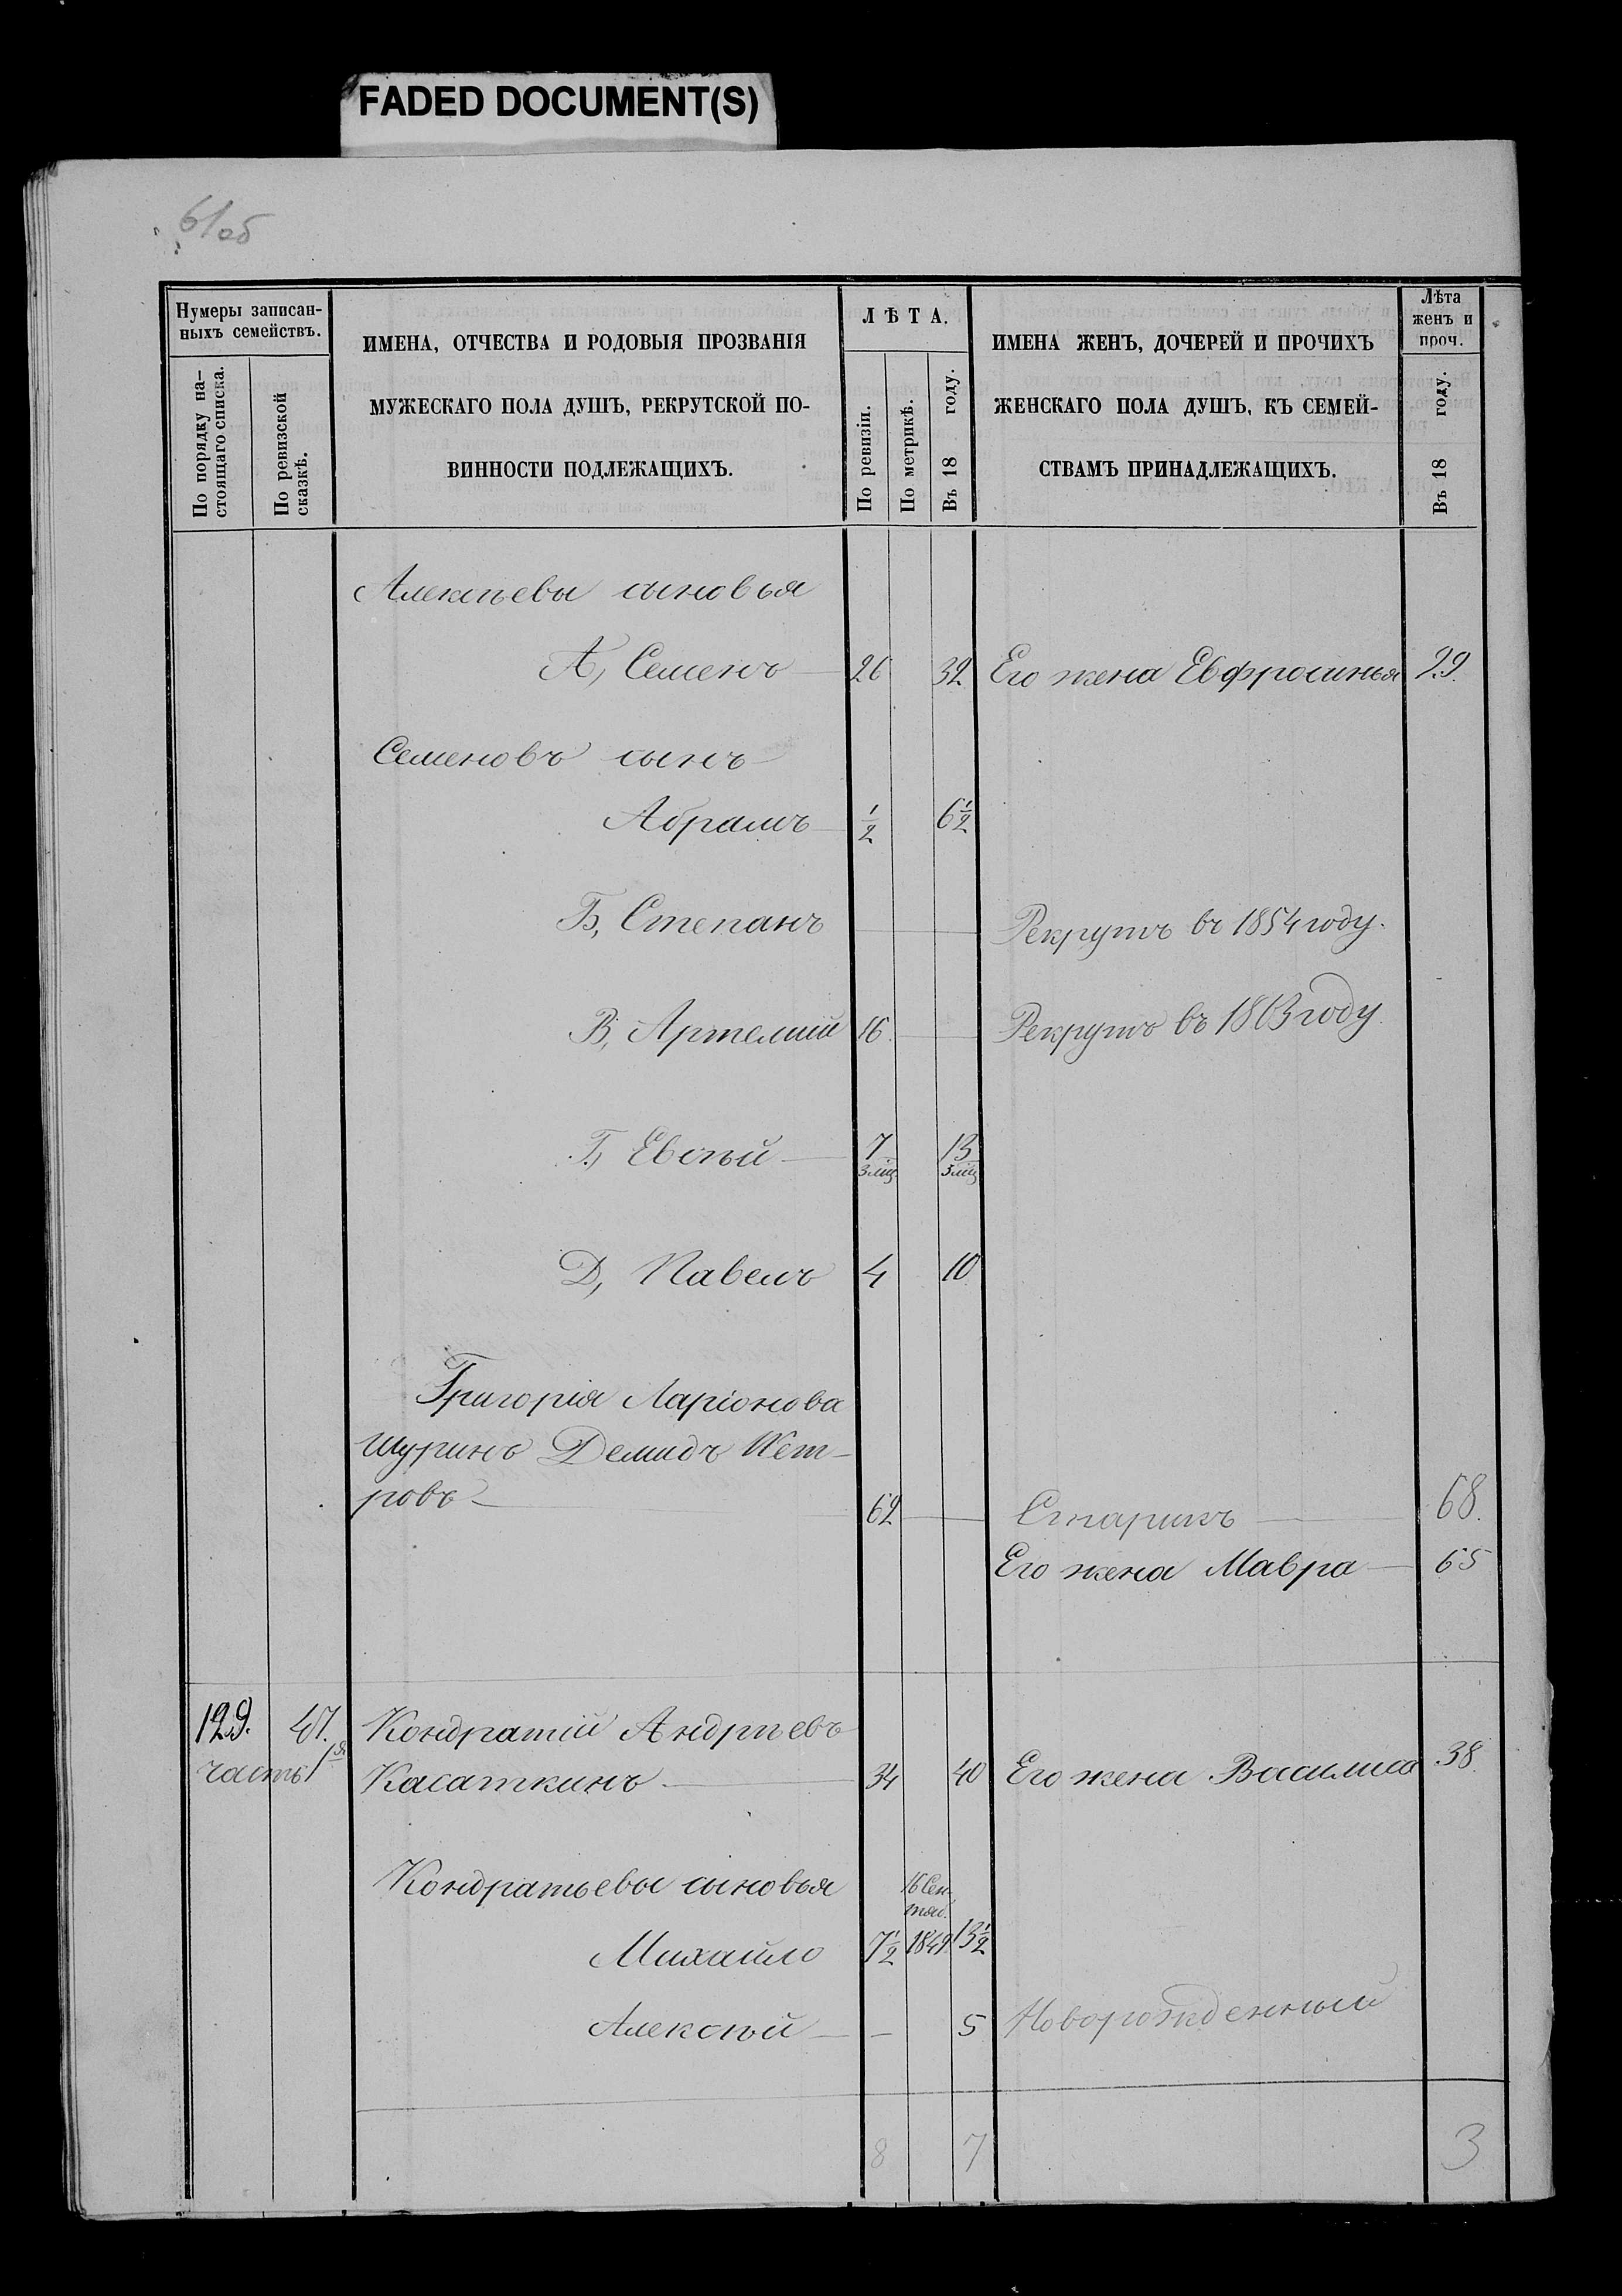 FADED DOCUMENT(S)
61 об
Нумеры записан-
ныхъ семействъ.
По порядку на-
стоящаго списка.
По ревизской
сказкѣ.
ИМЕНА, ОТЧЕСТВА И РОДОВЫЯ ПРОЗВАНІЯ
МУЖЕСКАГО ПОЛА ДУШЪ, РЕКРУТСКОЙ ПО-
ВИННОСТИ ПОДЛЕЖАЩИХЪ.
ЛѢТА.
По ревизіи.
По метрикѣ.
Въ 18 году.
ИМЕНА ЖЕНЪ, ДОЧЕРЕЙ И ПРОЧИХЪ
ЖЕНСКАГО ПОЛА ДУШЪ, КЪ СЕМЕЙ-
СТВАМЪ ПРИНАДЛЕЖАЩИХЪ.
Лѣта
женъ и
проч.
Въ 18 году.
Алексѣевы сыновья
А, Семенъ 26 32 Его жена Евфросинья 29.
Семеновъ сынъ
Абрамъ 1/2 6 1/2
Б, Степанъ Рекрутъ въ 1854 году.
В, Артемий 16 Рекрутъ въ 1863 году.
Г, Евсѣй 7 13
3 мѣц 5 мѣц
Д, Павелъ 4 10
Григорія Ларіонова
шуринъ Демидъ Пет-
ровъ 62 Старикъ 68.
Его жена Мавра 65
129. 47. Кондратій Андрѣевъ
часть 1я Касаткинъ 34 40 Его жена Василиса 38.
Кондратьевы сыновья 16 Сен
тяб.
Михайло 7 1/2 1849 13 1/2
Алексѣй - 5 Новорожденный
8 7 3